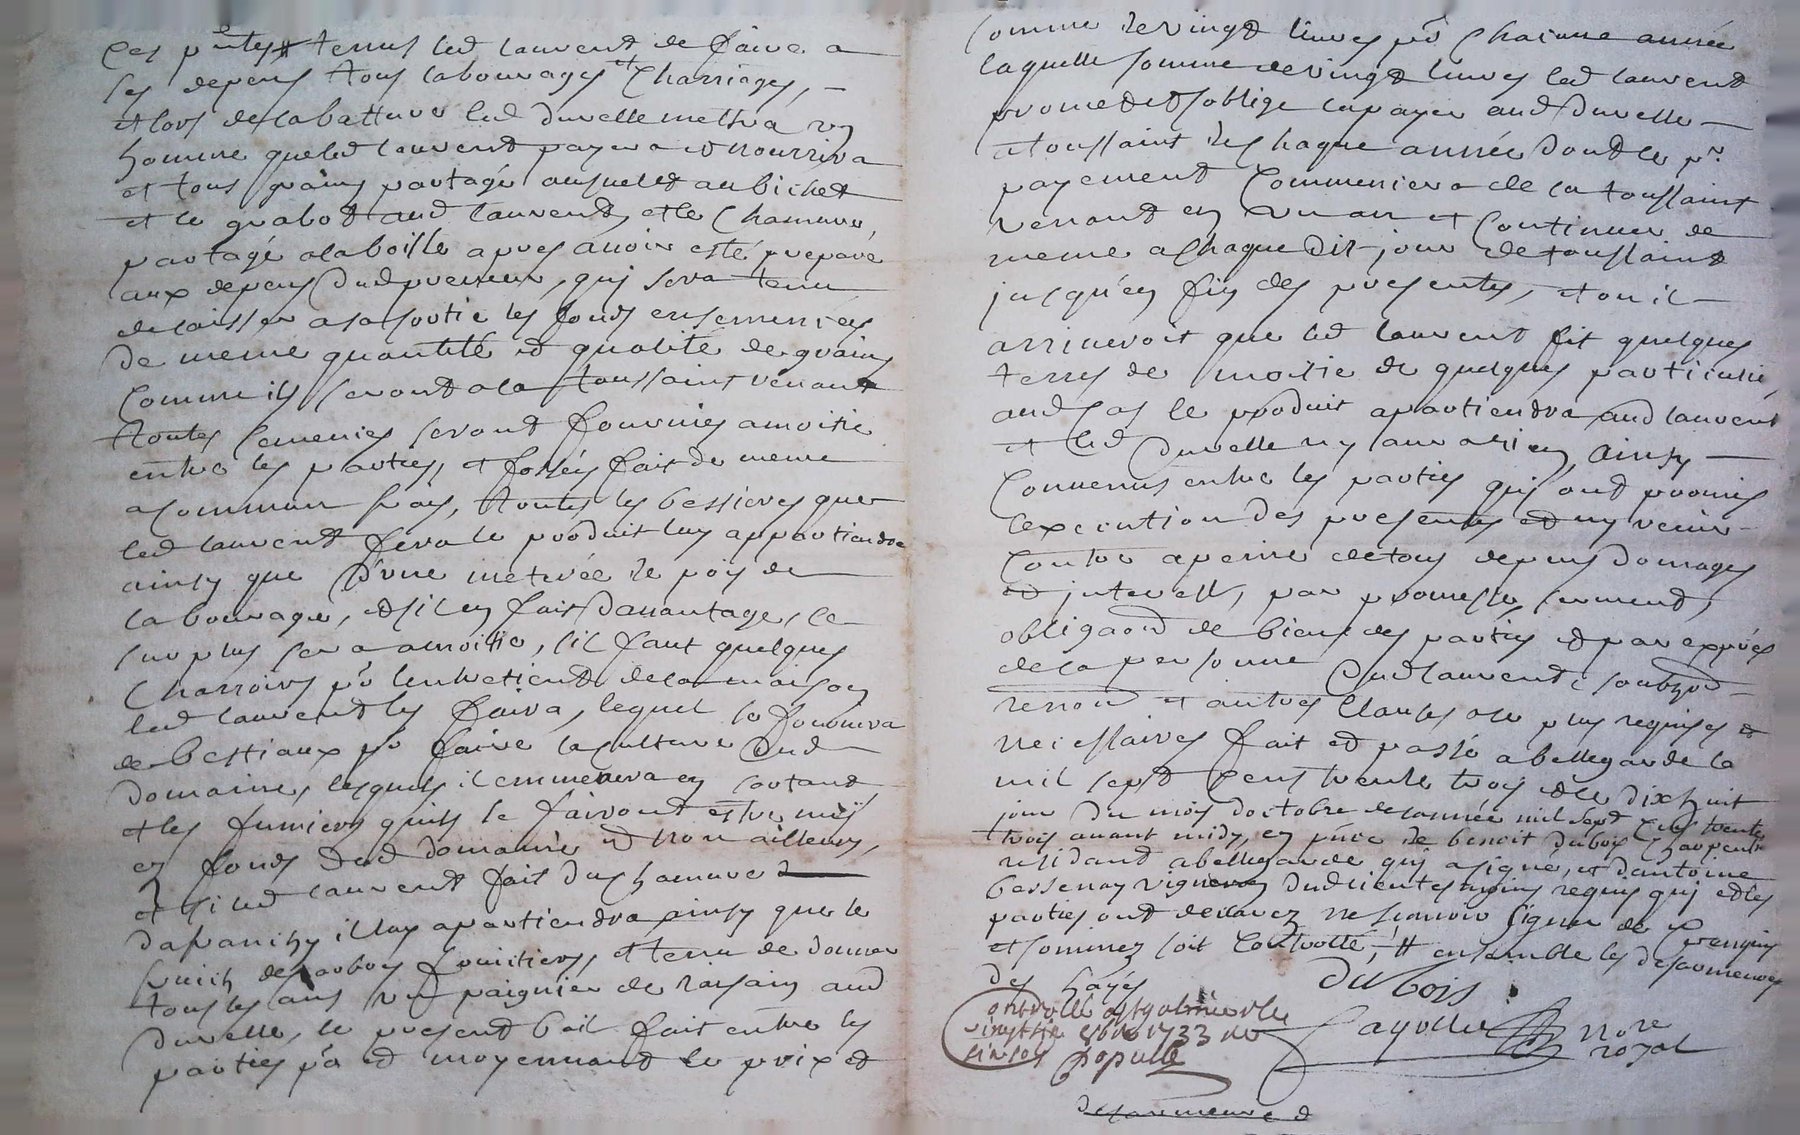 ces pntes # tenus led laurent de faire a
ses depens tous labourages et Charriages,
et lors de la batture led Duvelle mettra un
homme que led laurent payera et nourrira
et tous grains partagé ausuelet au bichet
et le grabot aud laurent, et le Chamure
partagé a la boisse apres avoir esté preparé
aux depens dud preneur, qui sera tenu
de laisser a sa sortie les fonds ensemencés
de meme quantité et qualité de grains
Comme ils seront a la toussaint venant
toutes semences seront fournies a moitié
entre les parties, et fossés fait de meme
a commun frais, toutes les bessieres que
led laurent fera le produit luy appartiendra
ainsy que d'une meterée de pois de
labourage, et s'il en fait davantage, le
surplus sera a moitié, s'il faut quelques
Charrois pr lentretient de la maison
led laurent les faira, lequel se fournira
de bestiaux pr faire la culture dud
domaine, lesquels il emmenera en sortant
et les fumiers quils le fairont estre mis
en fonds dud domaine et non ailleurs,
et si led laurent fait du chamure
il luy apartiendra ainsy que le
fruit des arbres fruitiers, et tenu de donner
tous les ans un paignier de raisain aud
Duvelle, le present bail fait entre les
parties pr et moyennant le prix et
somme de vingt livres pr Chacune année
laquelle somme de vingt livres led laurent
promet et soblige la payer aud Duvelle
a toussaint de chaque année dont le pr
payement Commencera de la toussaint
venant en un an et Continuer de
meme a chaque dit jour de toussaint
jusqu'en fin des presentes, et ou il
arriveroit que led laurent fit quelques
terres de moitié de quelques particulié
aud cas le produit apartiendra aud laurent
et led Duvelle ny aura rien, ainsy
Convenus entre les parties qui ont promis
lexecution des presentes et ny venir
Contre a peine de tous depens domages
et interests, par promesse serment,
obligaon de biens des parties et par exprés
de la personne dud laurent, soubzon
renon et autres Clauses a ce plus requises et
necessaires fait et passé a bellegarde la
mil sept Cens trente trois et le dixhuit
jour du mois doctobre de lannée mil sept Cens trente
trois avant midy, en pnce de benoit Dubois Charpentr
residant a bellegarde qui a signé, et dantoine
bessenay vigneron dud lieu tesmoins requis qui et les
parties ont declarez ne scavoir signer de ce enquis
et sommez soit Controllé, # ensemble les desarmeures
des hayes
Dubois
Controllé a St galmier le
vingt six 8bre 1733 
six sols
populle
Fayolle nore
royal